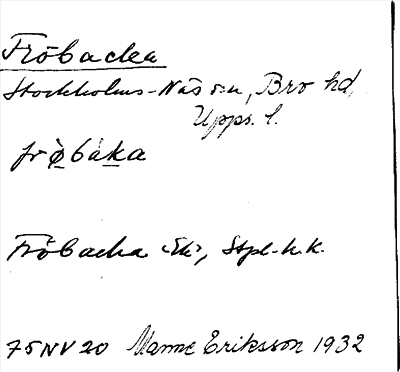 Fröbacka
Stockholms-Näs sn, Bro hd,
Upps. l.
frø̀bàka
Fröbacka <Ek>, Stpl. h.k.
75NV20 Manne Eriksson 1932